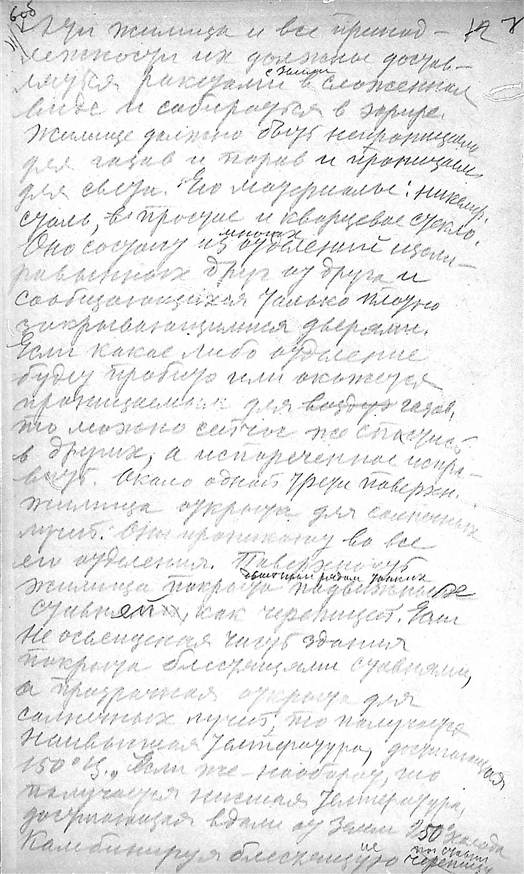 Эти жилища и все принад-
лежности их должны достав-
ляться ракетами с Земли в сложенном
виде и собираться в эфире.
Жилище должно быть непроницаемо
для газов и паров и проницаемо
для света. Его материалы: никкел.
сталь, простое и кварцевое стекло.
Оно состоит из многих отделений изоли-
рованных друг от друга и
сообщающихся только плотно
закрывающимися дверями.
Если какое либо отделение
будет пробито или окажется
проницаемым для воздух газов,
то можно сейчас же спастись
в других, а испорченное испра-
вить. Около одной трети поверхн.
жилища открыта для солнечных
лучей. Они проникают во все
его отделения. Поверхность
жилища покрыта подвижных
двойным рядом тонких
ставней, как черепицей. Если
не освещенная часть здания
покрыта блестящими ставнями,
а прозрачная открыта для
солнечных лучей, то получается
наивысшая температура, достигающая
150° Ц. Если же наоборот, то
получается низшая температура,
достигающая вдали от Земли 250° холода
Комбинируя блестящую